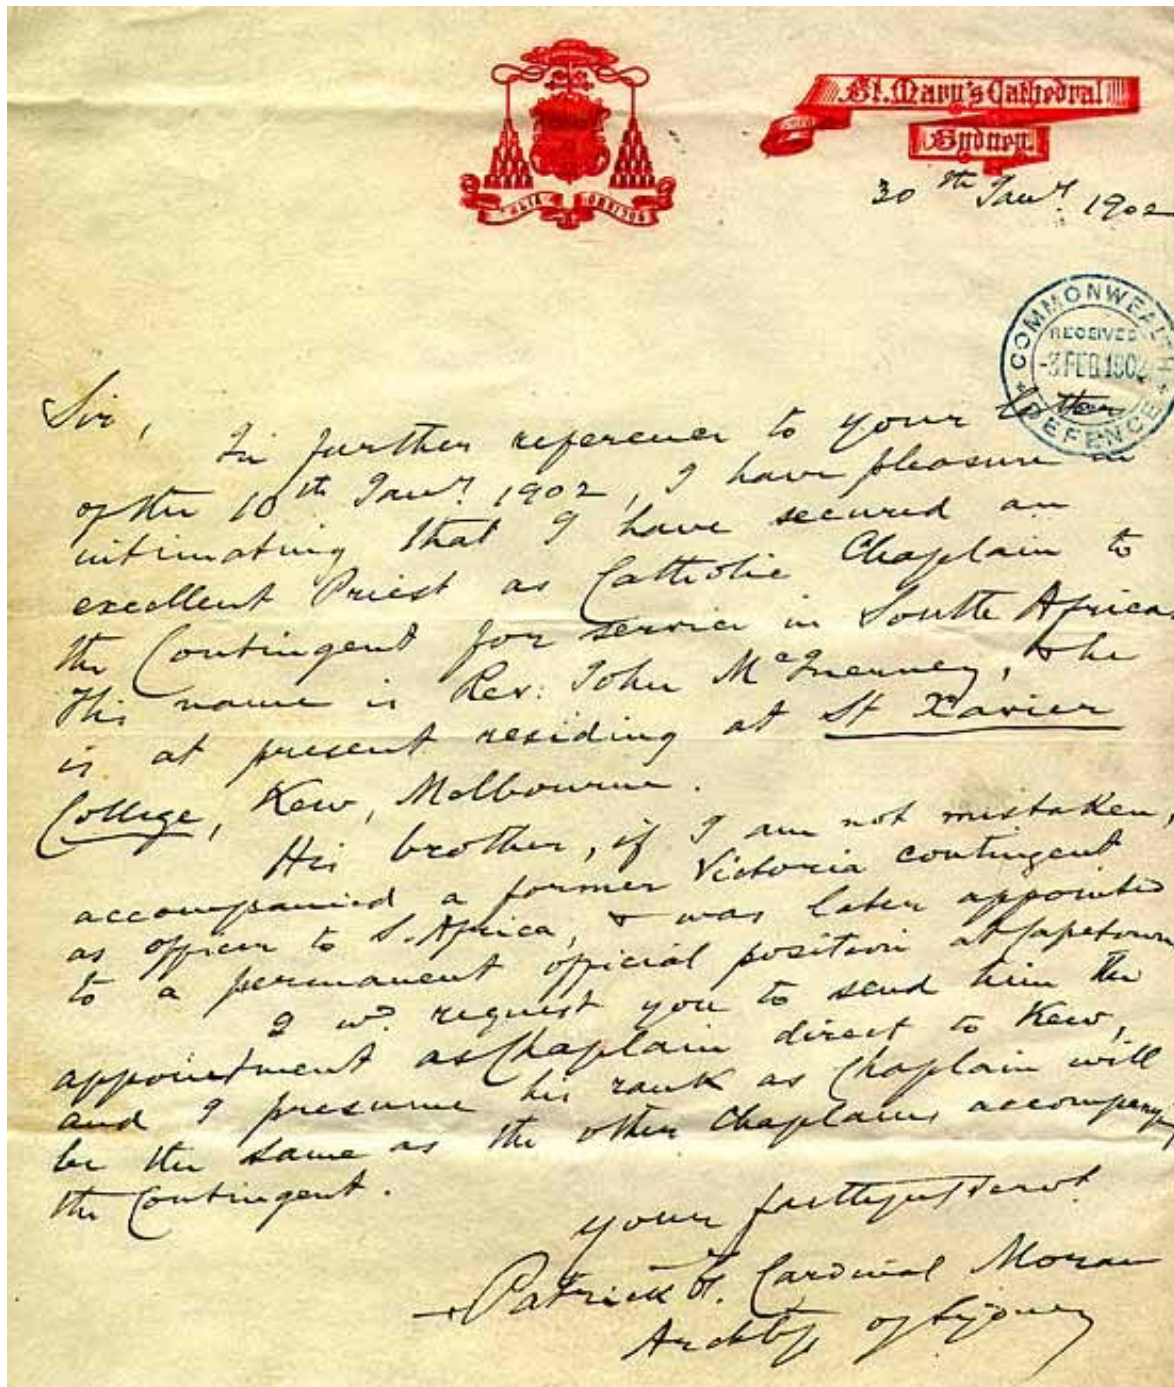 St. Mary's Cathedral
Sydney.
30th Jany. 1902
COMMONWEALTH
RECEIVED
-3 FEB 1902
DEFENCE
Sir,
In further reference to your letter
of the 10th Jany. 1902, I have pleasure in
intimating that I have secured an
excellent Priest as Catholic Chaplain to
the Contingent for service in South Africa.
His name is Rev: John McInerney, & he
is at present residing at St Xavier
College, Kew, Melbourne.
His brother, if I am not mistaken,
accompanied a former Victoria contingent
as officer to S. Africa, & was later appointed
to a permanent official position at Capetown
I wd. request you to send him the
appointment as Chaplain direct to Kew,
and I presume his rank as Chaplain will
be the same as the other Chaplains accompanying
the Contingent.
your faithful servt.
Patrick F. Cardinal Moran
Archbp of Sydney